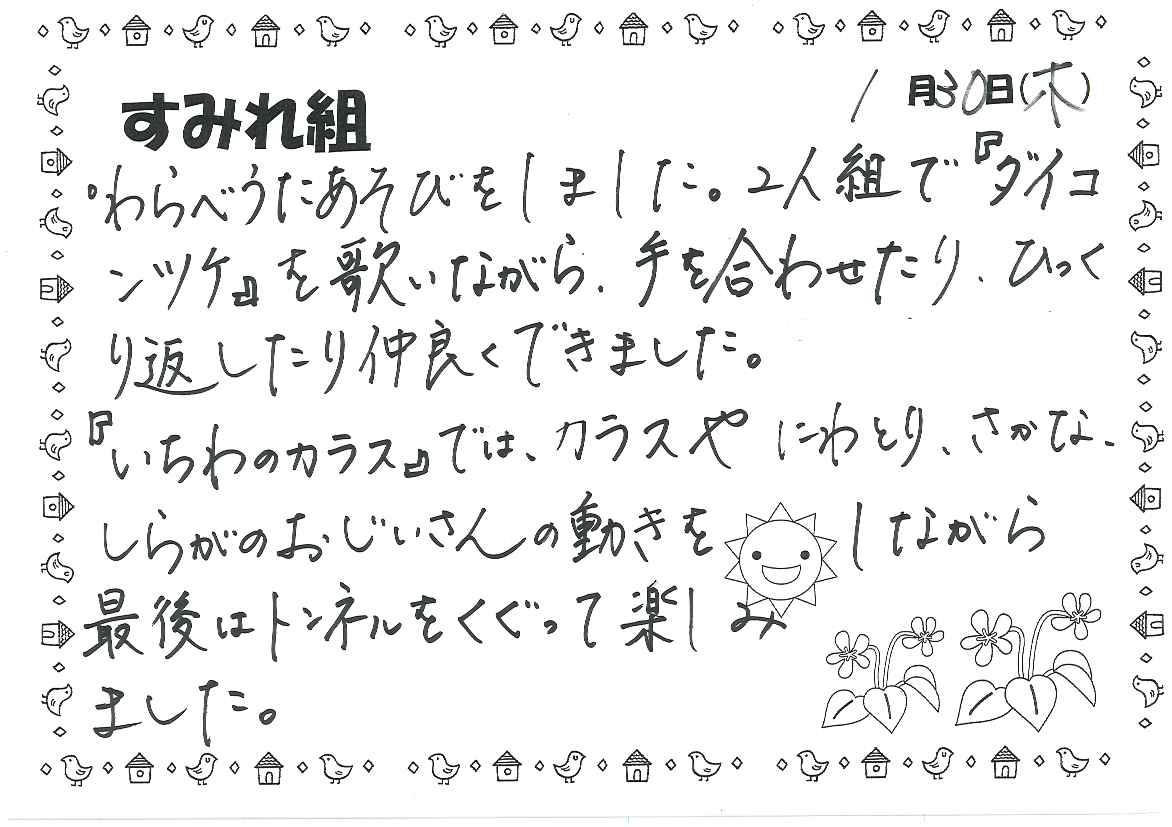 すみれ組
1月30日(木)
・わらべうたあそびをしました。2人組で『ダイコ
ンツケ』を歌いながら、手を合わせたり、ひっく
り返したり仲良くできました。
『いちわのカラス』では、カラスや にわとり、さかな、
しらがのおじぃさんの動きを しながら
最後はトンネルをくぐって楽しみ
ました。